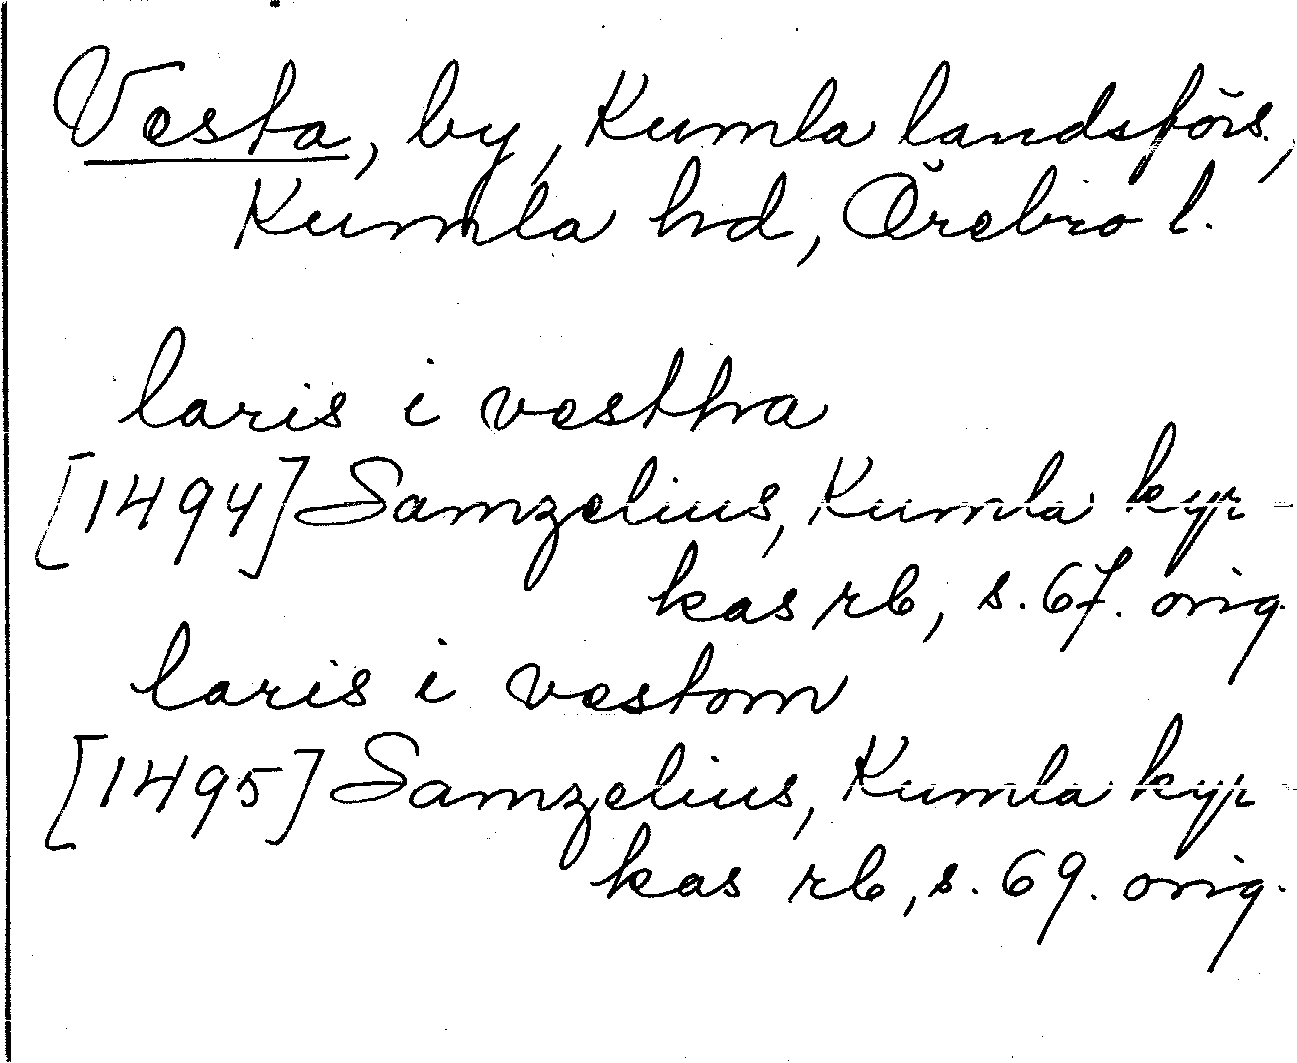 Vesta, by, Kumla landsförs.,
Kumla hd, Örebro l.
laris i vesthra
[1494] Samzelius, Kumla kyr-
kas rb, s. 67. orig.
laris i vestom
[1495] Samzelius, Kumla kyr-
kas rb, s. 69. orig.